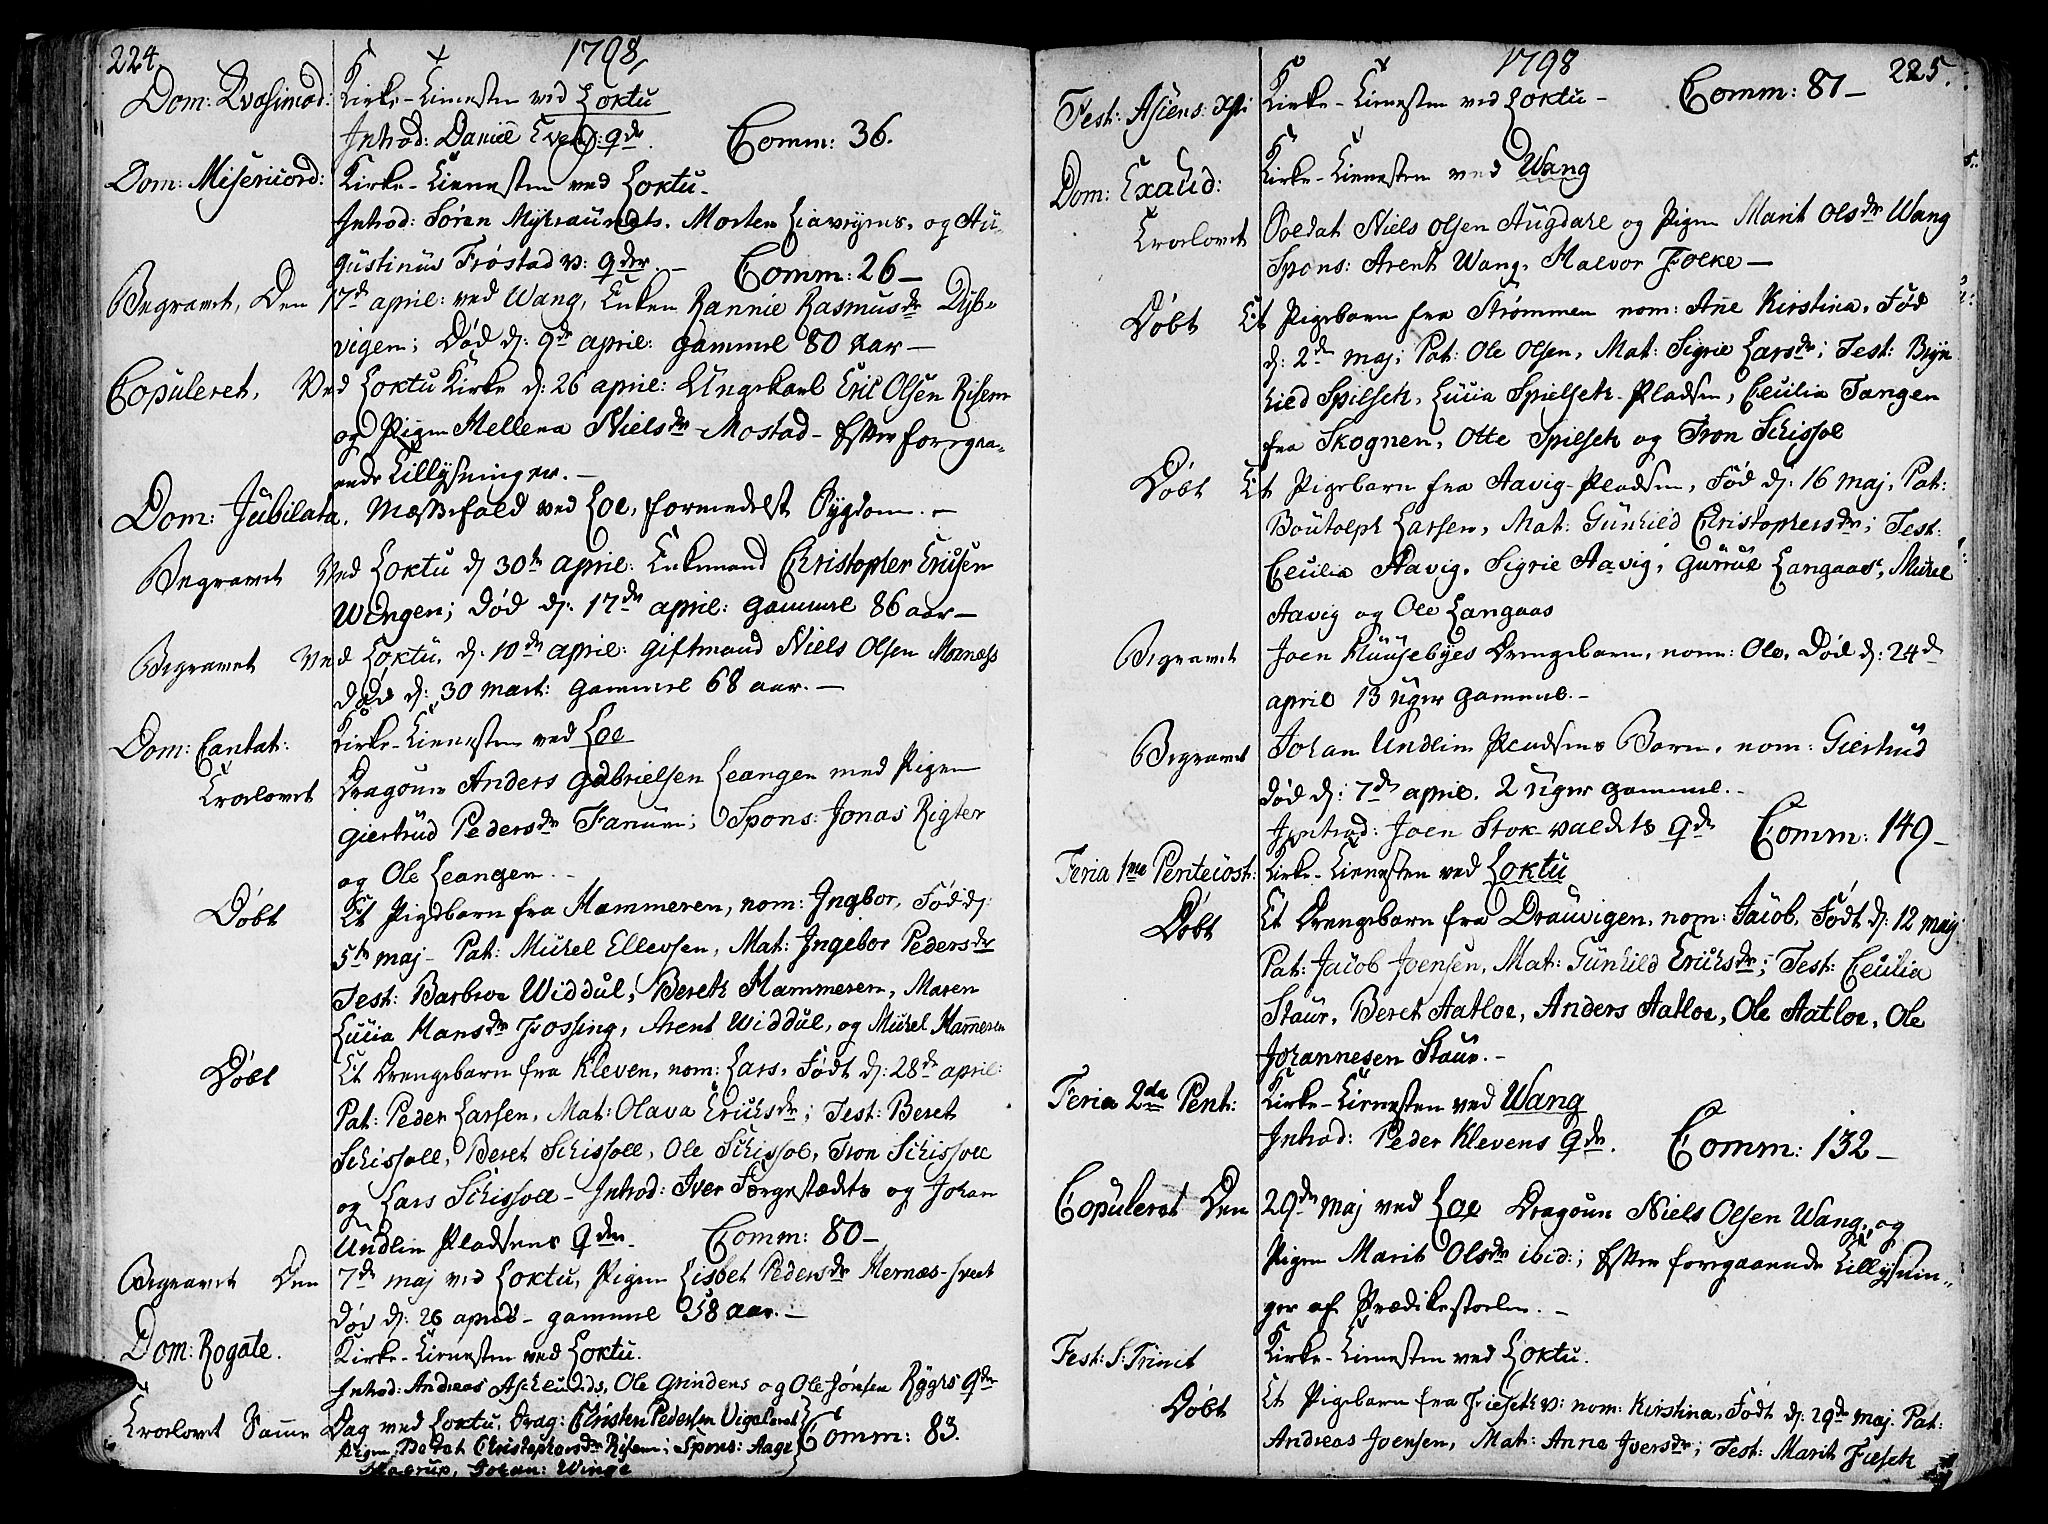 224.
1798
Dom: Qvasimod: Kirke-Tienesten ved Loktu
Introd: Daniel Evert: qde. Comm: 36.
Dom: Misericord: Kirke-Tienesten ved Loktu.
Introd: Sören Morten og Au-
gustinus Fröstad v: qder. Comm: 26 —
Begravet, Den 17de april: ved Wang, Enken Rannie Rasmusdr Dyb-
vigen; Död d: 9de april: gammel 80 aar —
Copuleret, Ved Loktu Kirke d: 26 april: Ungekarl Eric Olsen Risem
og Pigen Hellena Nielsdr Mostad - Efter foregaa-
ende Tillysninger. —
Dom: Jubilata, Mæssefald ved Loe, formedelst Sygdom. —
Begravet Ved Loktu d: 30te april: Enkemand Christopher Ericsen
Wingen; Död d: 17de april: gammel 86 aar —
Begravet Ved Loktu, d: 10de april: giftmand Niels Olsen Mornæss
Döde d: 30 mart: gammel 68 aar. —
Dom: Cantat: Kirke-Tienesten ved Loe
Trolovet Dragoun Anders Gabrielsen Leangen med Pigen
Giertrud Pedersdr Fanum; Spons: Jonas Rigter
og Ole Leangen. —
Döbt Et Pigebarn fra Hammeren, nom: Ingbor, Föd d:
5te maj - Pat: Mickel Ellevsen, Mat: Ingebor Pedersdr
Test: Barbroe Widdul, Bereth Hammeren, Maren
Lucia Hansdr Fossing, Arent Widdul, og Mickel Hammeren
Döbt Et Drengebarn fra Kleven, nom: Lars, Födt d: 28de april:
Pat: Peder Larsen, Mat: Olava Ericksdr; Test: Beret
Schissoll, Beret Schissoll, Ole Schissol, Tron Schissoll
og Lars Schissoll - Introd: Iver Forgestædets og Johan
Undlin Pladsens qder. Comm: 80 —
Begravet Den 7de maj ved Loktu, Pigen Lisbet Pedersdr Hernæs-
Död d: 26 april - gammel 58 aar. —
Dom: Rogate. Kirke-Tienesten ved Loktu.
Introd: Andreas Ole Grindens og Ole Jönsen Rygges qder
Trolovet Samme Dag ved Loktu, Drag: Christen Pedersen Vigelvet
Pigen Christophersdr Risem; Spons: Aage Comm: 83.
Johan: Winge
1798 225.
Fest: Asiens: Xsti Kirke-Tienesten ved Loktu - Comm: 87 —
Dom: Exaud: Kirke-Tienesten ved Wang
Trolovet Soldat Niels Olsen Augdahl og Pigen Marit Olsdr Wang
Spons: Arent Wang, Halvor Folke —
Döbt Et Pigebarn fra Strömmen nom: Ane Kirstina, Föd
d: 2de maj; Pat: Ole Olsen, Mat: Sigrie Larsdr; Test: Bryn
hild Spilseth, Lucia Spielseth-Pladsen, Cecilia Tangen
fra Skognen, Otte Spilseth og Tron Schissol
Döbt Et Pigebarn fra Aavig-Pladsen, Föd d: 16 maj, Pat:
Boutolph Larsen, Mat: Gunhild Christophersdr; Test:
Cecilia Aavig, Sigrie Aavig, Gurrue Langaas, Mickel
Aavig og Ole Langaas
Begravet Joen Huusebyes Drengebarn, nom: Ole, Död d: 24de
april 13 uger gammel. —
Begravet Johan Undlin Pladsens Barn, nom: Giertrud
död d: 7de april. 2 uger gammel. —
Introd: Joen Stokvaldets qde Comm: 149 —
Feria 1me Pentecost: Kirke-Tienesten ved Loktu
Döbt Et Drengebarn fra Drauvigen, nom: Jacob, Födt d: 12 maj
Pat: Jacob Joensen, Mat: Gunhild Ericksdr; Test: Cecilia
Staur, Beret Aatloe, Anders Aatloe, Ole Aatloe, Ole
Johannesen Staur. —
Feria 2da Pent: Kirke-Tienesten ved Wang
Introd: Peder Klevens qde. Comm: 132 —
Copuleret Den 29de maj ved Loe Dragoun Niels Olsen Wang, og
Pigen Marit Olsdr ibid:; Efter foregaaende Tillysnin-
ger af Prædikestoelen. —
Fest: S: Trinit Kirke-Tienesten ved Loktu.
Döbt Et Pigebarn fra Fieseth v: nom: Kirstina, Födt d: 29de maj. Pat:
Andreas Joensen, Mat: Anne Iversdr; Test: Marit Fieseth